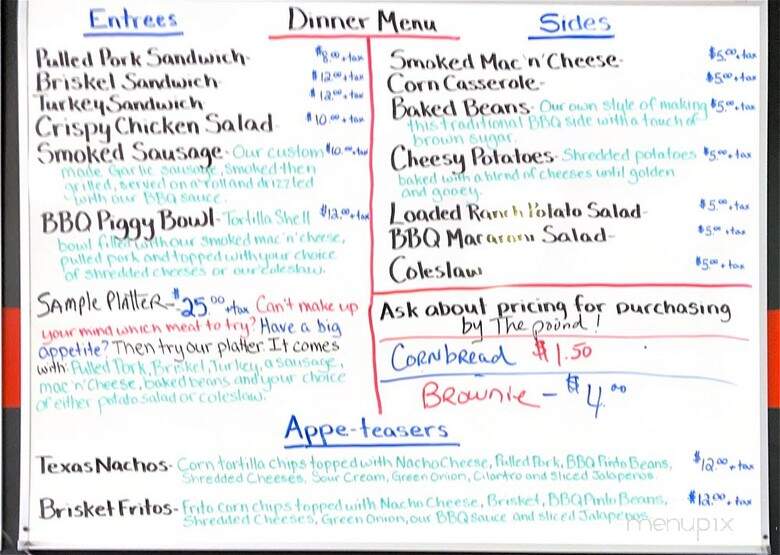 Dinner Menu
Entrees
Pulled Pork Sandwich- $8.00 + tax
Brisket Sandwich- $12.00 + tax
Turkey Sandwich $12.00 + tax
Crispy Chicken Salad $10.00 + tax
Smoked Sausage- Our custom $10.00 + tax
made Garlic sausage, smoked then
grilled, served on a roll and drizzled
with our BBQ sauce.
BBQ Piggy Bowl- Tortilla Shell $12.00 + tax
bowl filled with our smoked mac 'n' cheese,
pulled pork and topped with your choice
of shredded cheeses or our coleslaw.
Sample Platter- $25.00 + tax Can't make up
your mind which meat to try? Have a big
appetite? Then try our platter. It comes
with: Pulled Pork, Brisket, Turkey, a sausage,
mac 'n' Cheese, baked beans and your choice
of either potato salad or coleslaw.
Sides
Smoked Mac 'n' Cheese- $5.00 + tax
Corn Casserole- $5.00 + tax
Baked Beans- Our own style of making $5.00 + tax
this traditional BBQ side with a touch of
brown sugar.
Cheesy Potatoes- Shredded potatoes $5.00 + tax
baked with a blend of cheeses until golden
and gooey.
Loaded Ranch Potato Salad- $5.00 + tax
BBQ Macaroni Salad- $5.00 + tax
Coleslaw $5.00 + tax
Ask about pricing for purchasing
by The pound!
Cornbread $1.50
Brownie - $4.00
Appe-teasers
Texas Nachos- Corn tortilla chips topped with Nacho Cheese, Pulled Pork, BBQ Pinto Beans, $12.00 + tax
Shredded Cheeses, Sour Cream, Green Onion, Cilantro and Sliced Jalapenos.
Brisket Fritos- Frito corn chips topped with Nacho Cheese, Brisket, BBQ Pinto Beans, $12.00 + tax
Shredded Cheeses, Green Onion, our BBQ sauce and sliced Jalapenos
menupix